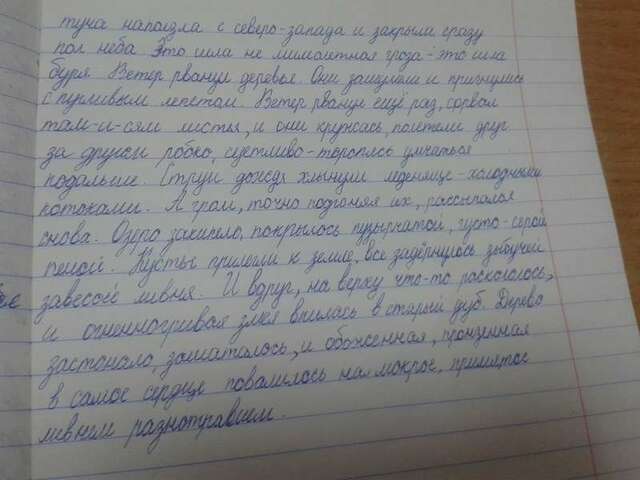 туча наползла с северо-запада и закрыли сразу
пол неба Это шла не мимолетная гроза - это шла
буря. Ветер рванул деревья. Они зашумели и пригнулись
с пугливым лепетом. Ветер рванул ещё раз, сорвал
там-и-сям листья, и они кружась, полетели друг
за другом робко, суетливо-торопясь умчаться
подальше. Струи дождя хлынули леденяще-холодными
потоками. А гром, точно подгоняя их, рассыпался
снова. Озеро закипело, покрылось пузырчатой, густо-серой
пеной. Кусты прилегли к земле, все задёрнулось зыбучей
завесой ливня. И вдруг, на верху что-то раскололось,
и огненногривая змея впилась в старый дуб. Дерево
застонало, зашаталось, и обоженная, пронзенная
в самое сердце повалилось на мокрое, примятое
ливнем разнотравием.